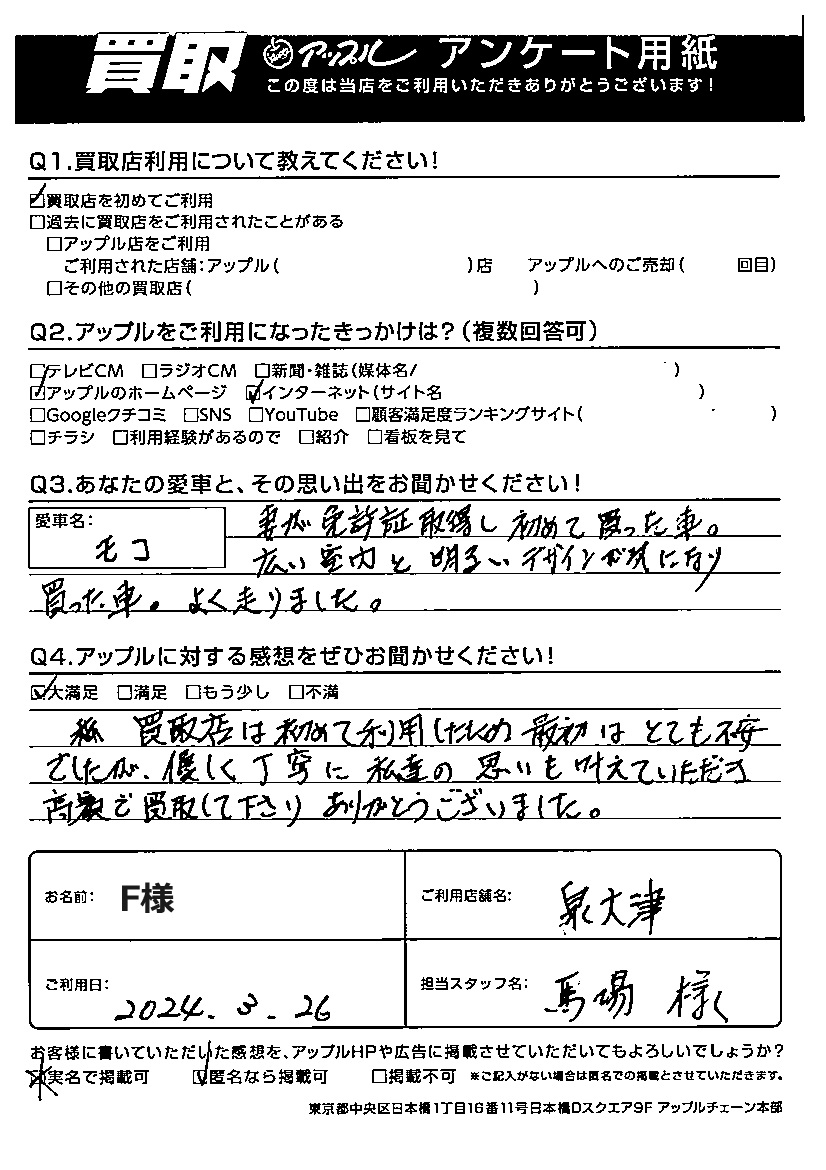 買取 アップル アンケート用紙
この度は当店をご利用いただきありがとうございます!
Q1.買取店利用について教えてください!
☑買取店を初めてご利用
□過去に買取店をご利用されたことがある
□アップル店をご利用
ご利用された店舗:アップル( )店 アップルへのご売却( 回目)
□その他の買取店( )
Q2.アップルをご利用になったきっかけは?(複数回答可)
□テレビCM □ラジオCM □新聞・雑誌(媒体名/ )
☑アップルのホームページ ☑インターネット(サイト名 )
□Googleクチコミ □SNS □YouTube □顧客満足度ランキングサイト( )
□チラシ □利用経験があるので □紹介 □看板を見て
Q3.あなたの愛車と、その思い出をお聞かせください!
愛車名:
モコ
妻が免許証取得し初めて買った車。
広い室内と明るいデザインが気になり
買った車。よく走りました。
Q4.アップルに対する感想をぜひお聞かせください!
☑大満足 □満足 □もう少し □不満
私 買取店は初めて利用したため最初はとても不安
でしたが、優しく丁寧に私達の思いも叶えていただき
高額で買取して下さりありがとうございました。
お名前: F様 ご利用店舗名: 泉大津
ご利用日: 2024.3.26 担当スタッフ名: 馬場 様
お客様に書いていただいた感想を、アップルHPや広告に掲載させていただいてもよろしいでしょうか?
□実名で掲載可 ☑匿名なら掲載可 □掲載不可 ※ご記入がない場合は匿名での掲載とさせていただきます。
東京都中央区日本橋1丁目16番11号日本橋Dスクエア9F アップルチェーン本部